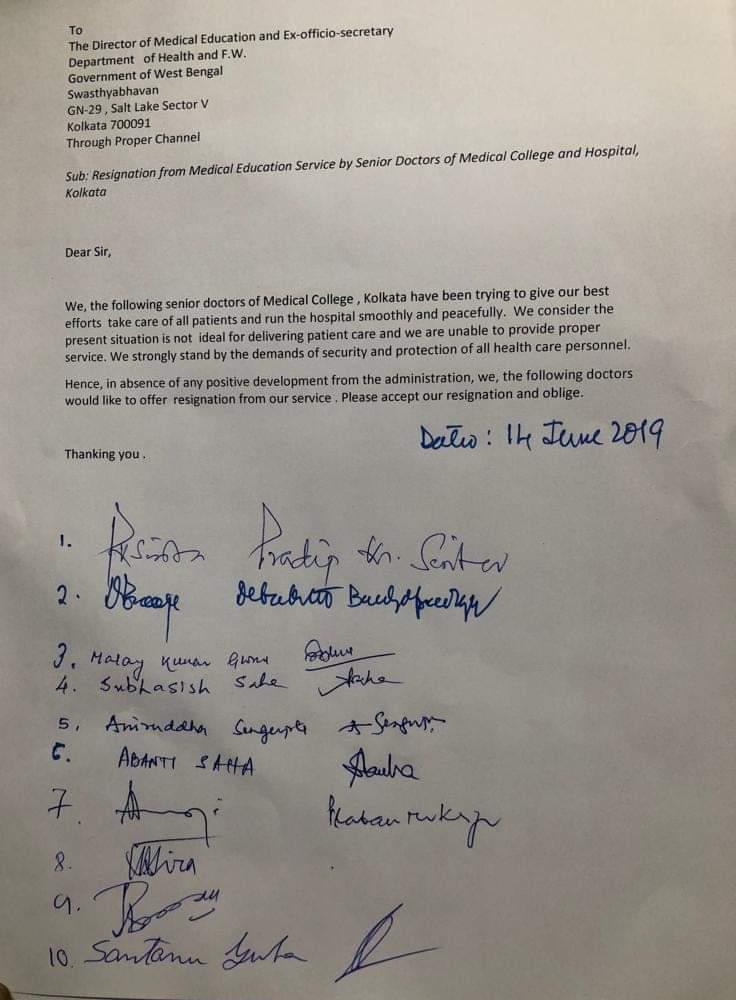 To
The Director of Medical Education and Ex-officio-secretary
Department of Health and F.W.
Government of West Bengal
Swasthyabhavan
GN-29 , Salt Lake Sector V
Kolkata 700091
Through Proper Channel
Sub: Resignation from Medical Education Service by Senior Doctors of Medical College and Hospital,
Kolkata
Dear Sir,
We, the following senior doctors of Medical College , Kolkata have been trying to give our best
efforts take care of all patients and run the hospital smoothly and peacefully. We consider the
present situation is not ideal for delivering patient care and we are unable to provide proper
service. We strongly stand by the demands of security and protection of all health care personnel.
Hence, in absence of any positive development from the administration, we, the following doctors
would like to offer resignation from our service . Please accept our resignation and oblige.
: 14 June 2019
Thanking you .
1. Pradip Kr.
2.
3. Malay Kumar
4. Subhasish Saha
5. Aniruddha Sengupta
6. ABANTI SAHA
7.
8.
9.
10. Santanu Guha